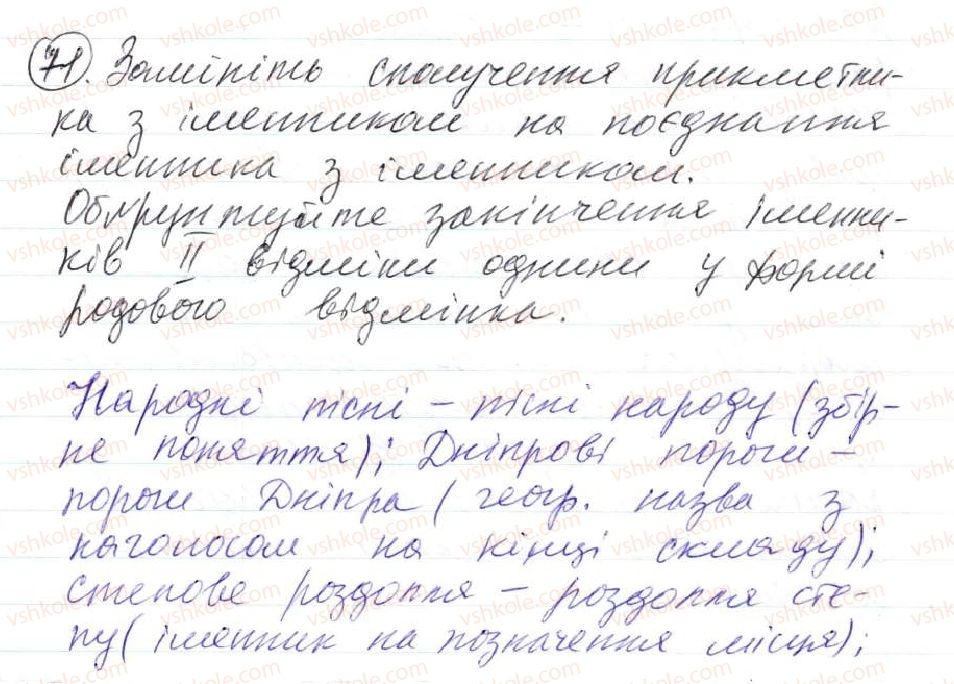 71. Замініть сполучення прикметни-
ка з іменником на поєднання
іменника з іменником.
Обґрунтуйте закінчення іменни-
ків II відміни однини у формі
родового відмінка.
Народні пісні – пісні народу (збір-
не поняття); Дніпрові пороги –
пороги Дніпра (геогр. назва з
наголосом на кінці складу);
степове роздолля – роздолля сте-
пу (іменник на позначення місця);